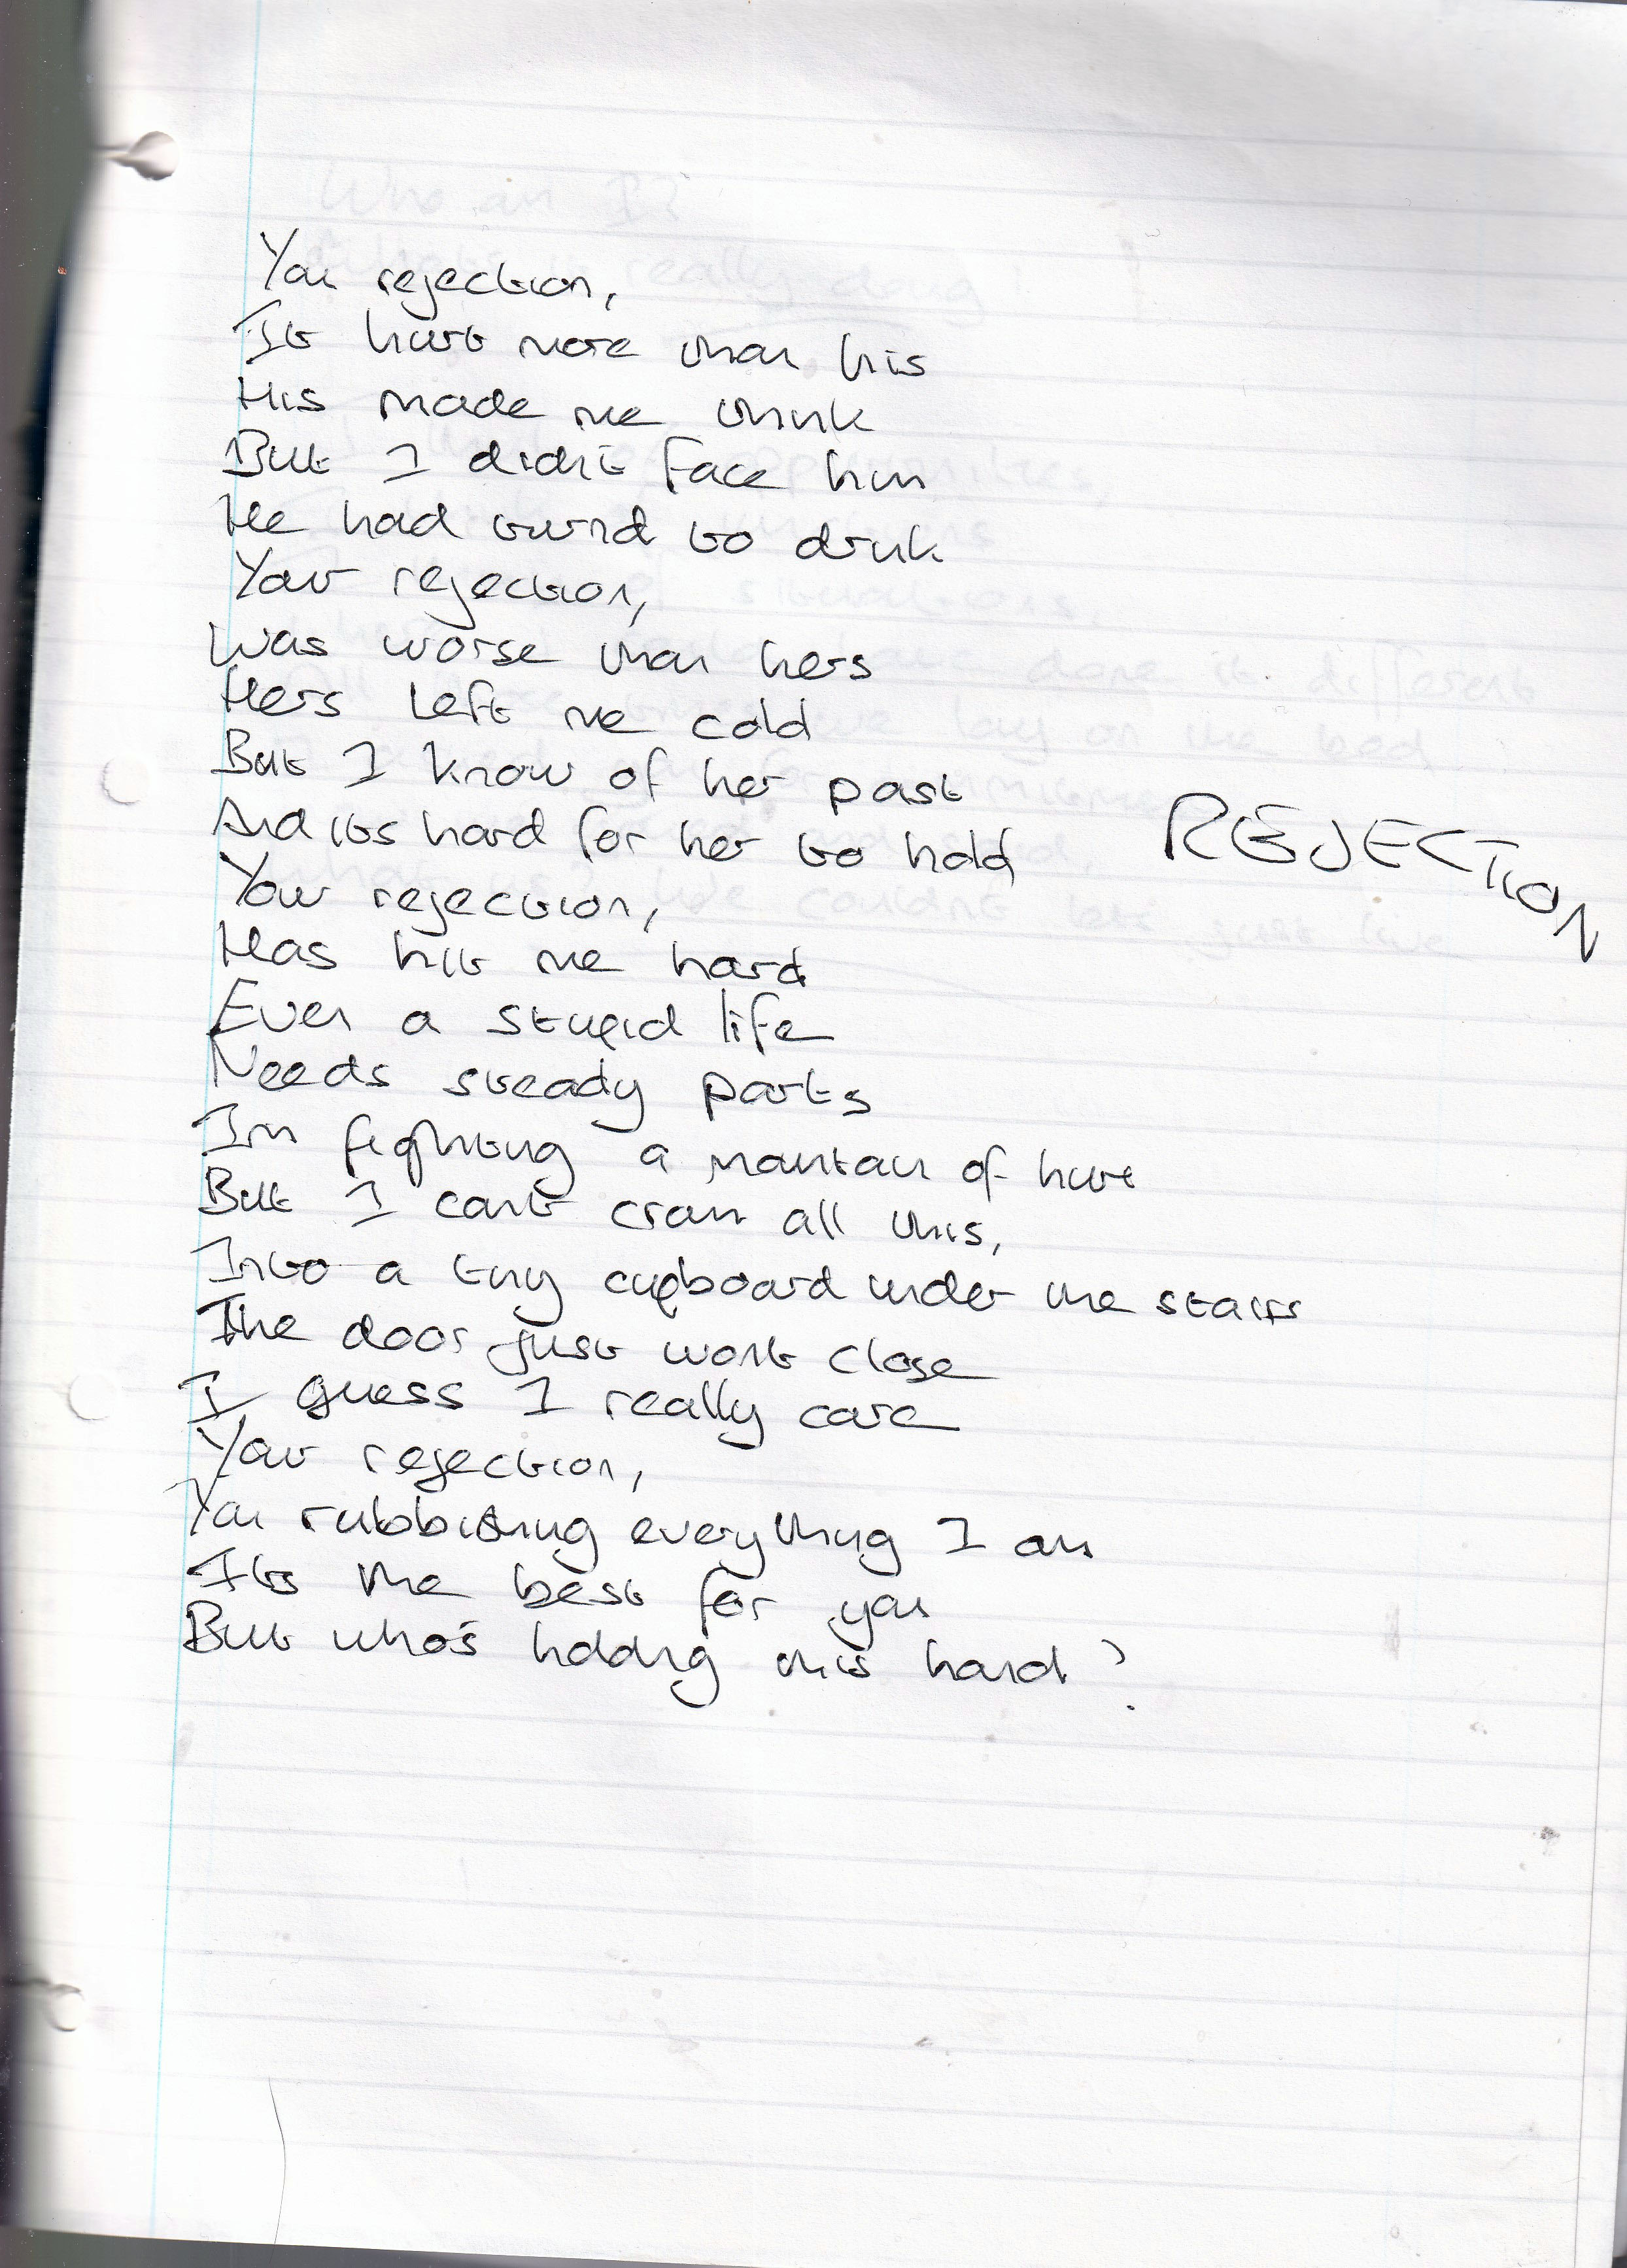 Your rejection,
It hurt more than his
His made me think
But I didn't face him
He had turnd to drink
Your rejection,
Was worse than hers
Hers left me cold
But I know of her past
And its hard for her to hold
REJECTION
Your rejection,
Has hit me hard
Even a stupid life
Needs steady parts
Im fighting a mountain of hurt
But I cant cram all this,
Into a tiny cupboard under the stairs
The door just wont close
I guess I really care
Your rejection,
Your rubbishing everything I am
Its the best for you
But who's holding this hand?